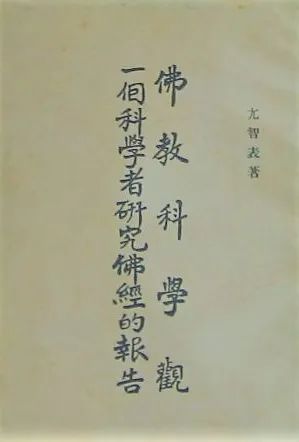 尢智表著
佛教科學觀
一個科學者研究佛經的報告